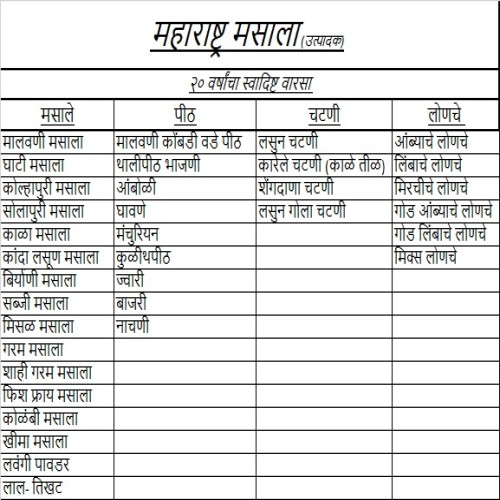 महाराष्ट्र मसाला (उत्पादक)
२० वर्षांचा स्वादिष्ट वारसा
मसाले पीठ चटणी लोणचे
मालवणी मसाला मालवणी कोंबडी वडे पीठ लसुन चटणी आंब्याचे लोणचे
घाटी मसाला थालीपीठ भाजणी कारेले चटणी (काळे तीळ) लिंबाचे लोणचे
कोल्हापुरी मसाला आंबोळी शेंगदाणा चटणी मिरचीचे लोणचे
सोलापुरी मसाला घावणे लसुन गोला चटणी गोड आंब्याचे लोणचे
काळा मसाला मंचुरियन गोड लिंबाचे लोणचे
कांदा लसूण मसाला कुळीथपीठ मिक्स लोणचे
बिर्याणी मसाला ज्वारी
सब्जी मसाला बाजरी
मिसळ मसाला नाचणी
गरम मसाला
शाही गरम मसाला
फिश फ्राय मसाला
कोळंबी मसाला
खीमा मसाला
लवंगी पावडर
लाल- तिखट